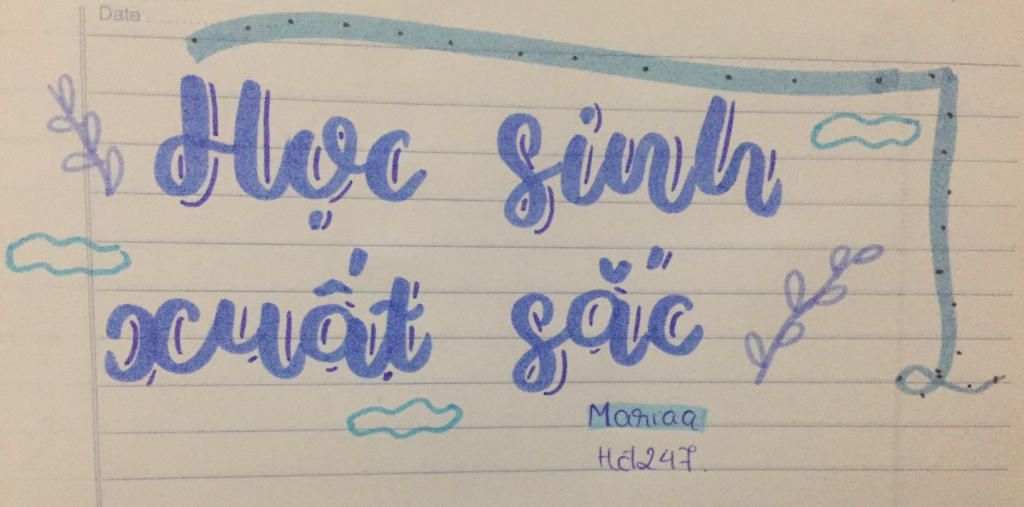 Date
Học sinh
xuất sắc
Mariaa
Hd247.